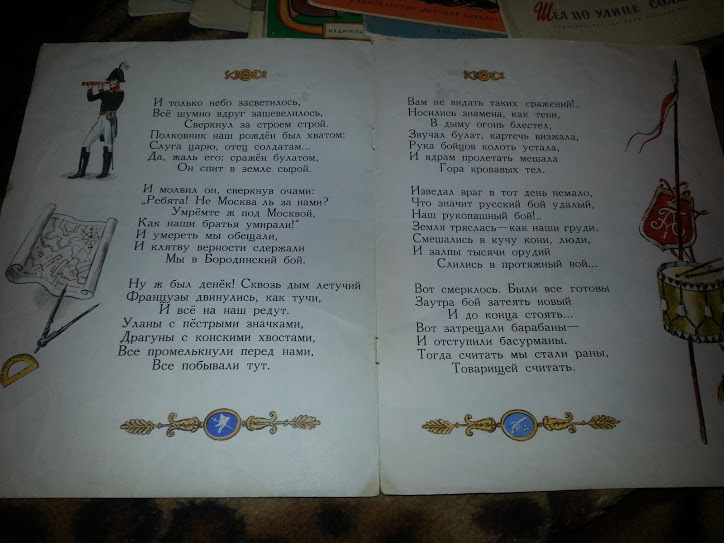 ИЗДАТЕЛЬ
Шёл по улице
И только небо засветилось,
Всё шумно вдруг зашевелилось,
Сверкнул за строем строй.
Полковник наш рождён был хватом:
Слуга царю, отец солдатам...
Да, жаль его: сражён булатом,
Он спит в земле сырой.
И молвил он, сверкнув очами:
„Ребята! Не Москва ль за нами?
Умрёмте ж под Москвой,
Как наши братья умирали!“
И умереть мы обещали,
И клятву верности сдержали
Мы в Бородинский бой.
Ну ж был денёк! Сквозь дым летучий
Французы двинулись, как тучи,
И всё на наш редут.
Уланы с пёстрыми значками,
Драгуны с конскими хвостами,
Все промелькнули перед нами,
Все побывали тут.
Вам не видать таких сражений!..
Носились знамена, как тени,
В дыму огонь блестел,
Звучал булат, картечь визжала,
Рука бойцов колоть устала,
И ядрам пролетать мешала
Гора кровавых тел.
Изведал враг в тот день немало,
Что значит русский бой удалый,
Наш рукопашный бой!..
Земля тряслась—как наши груди,
Смешались в кучу кони, люди,
И залпы тысячи орудий
Слились в протяжный вой...
Вот смерклось. Были все готовы
Заутра бой затеять новый
И до конца стоять...
Вот затрещали барабаны—
И отступили басурманы.
Тогда считать мы стали раны,
Товарищей считать.